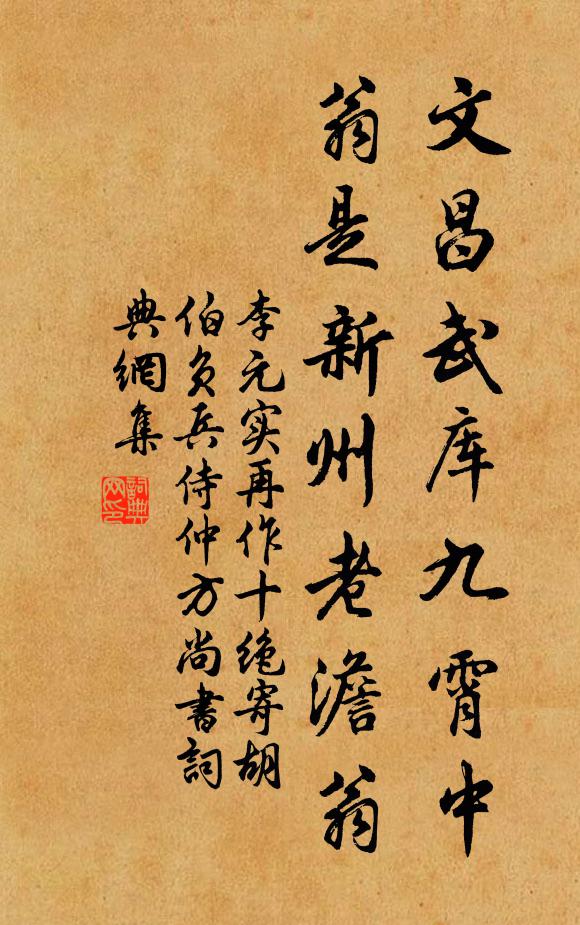 文昌武库九霄中
翁是新州老澹翁
李元实再作十绝寄胡
伯负兵侍仲方尚書詞
典網集
詞典
网印